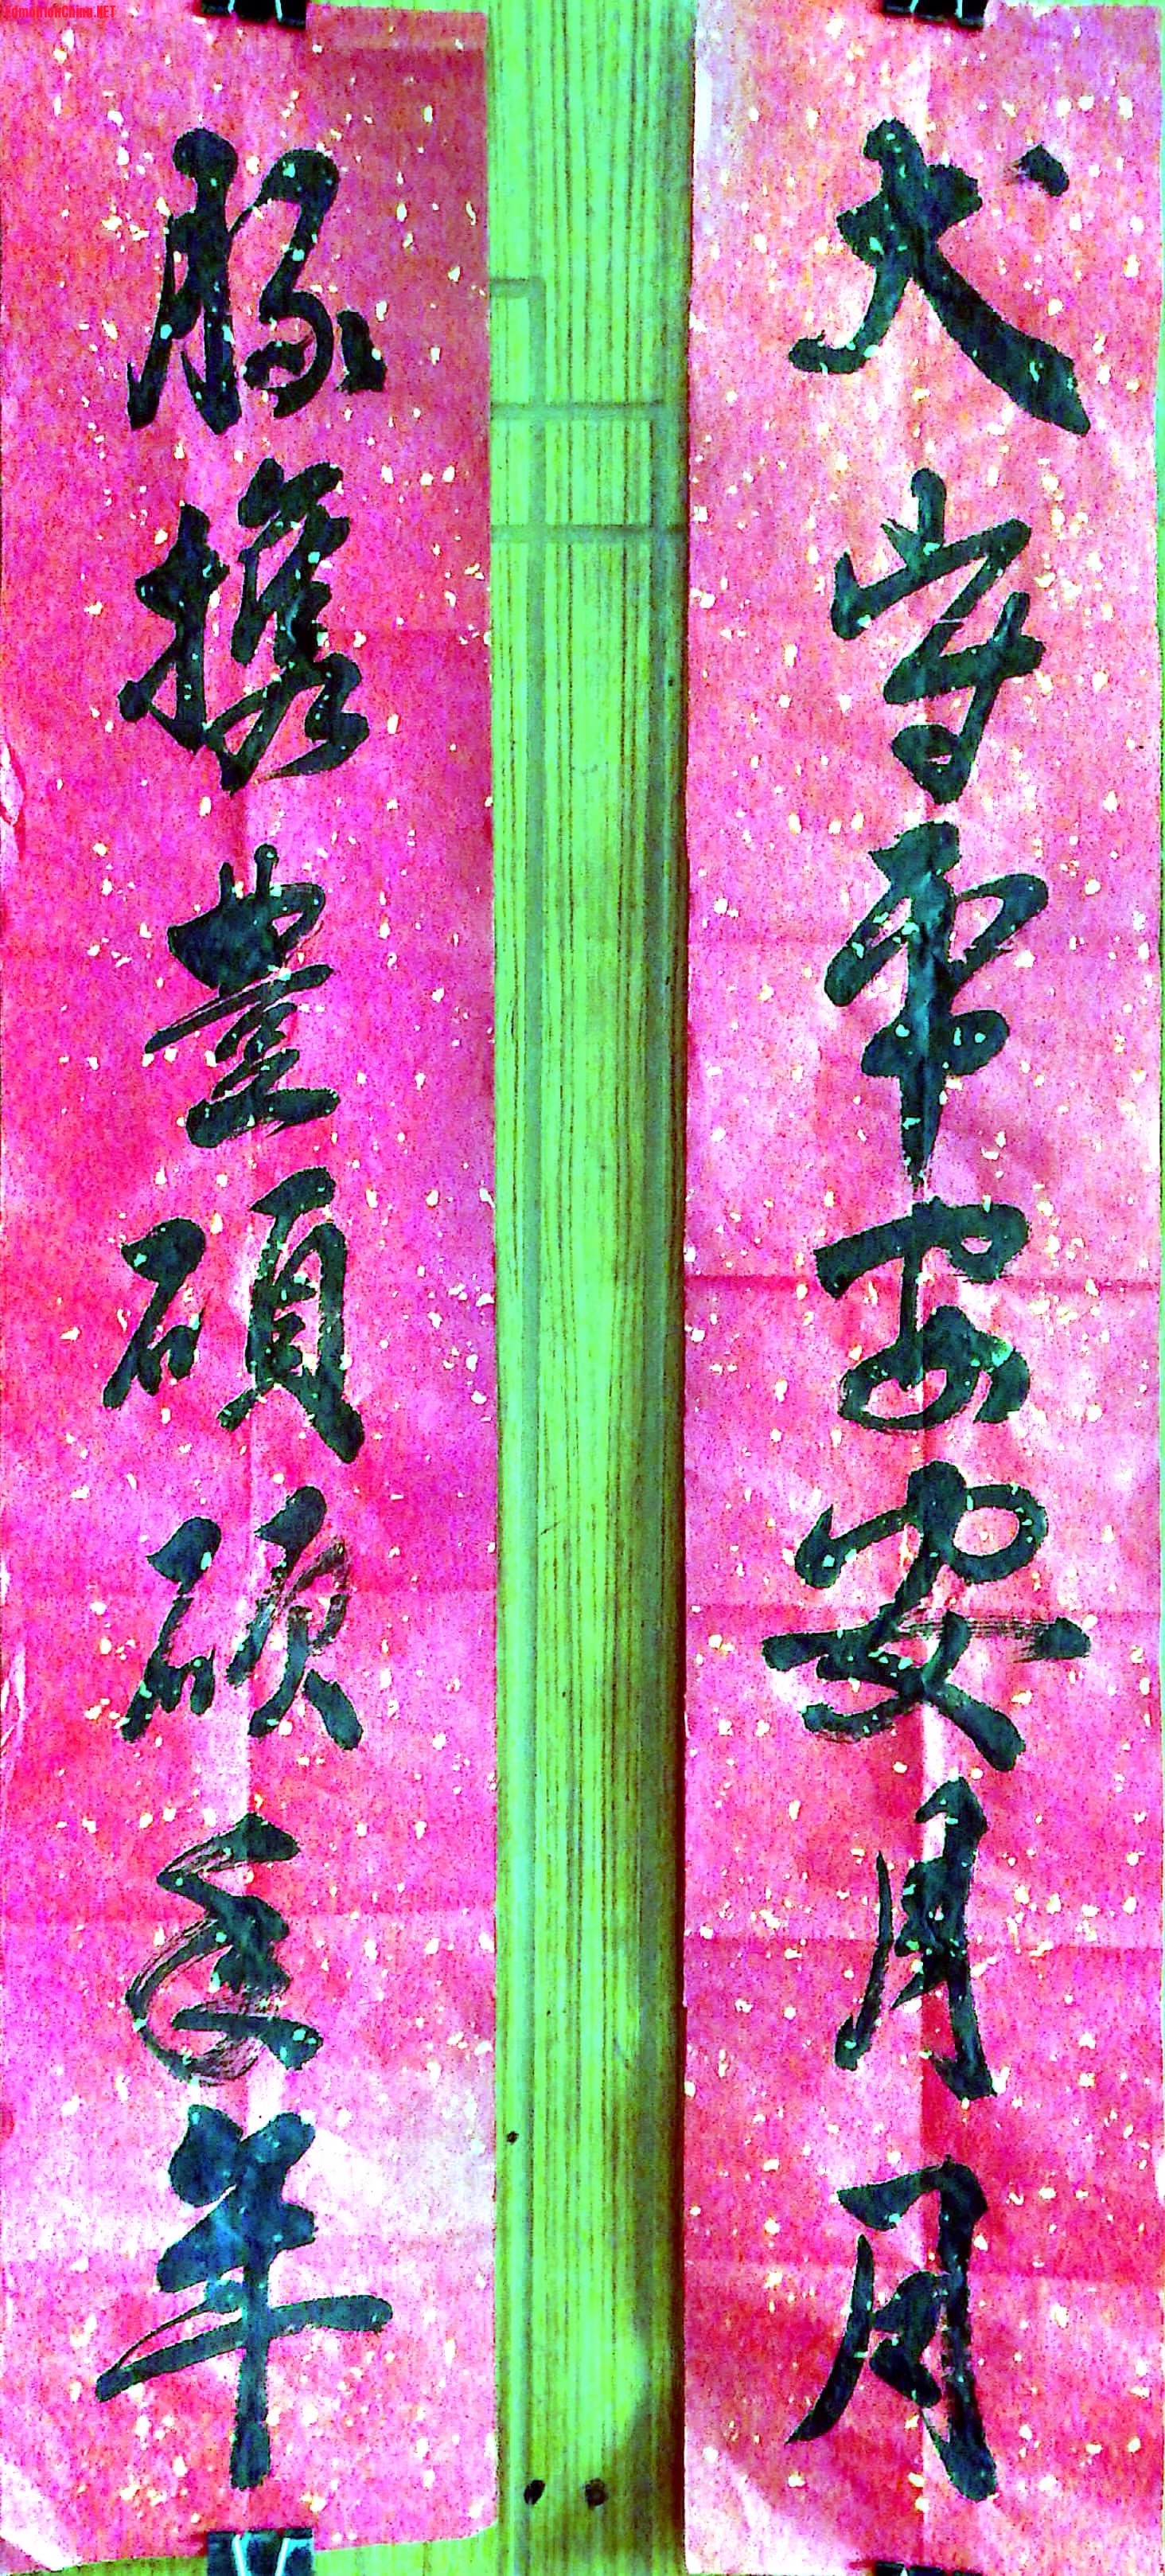 EdmontonChina.NET
犬守平安安月月
豚携豊碩碩年年